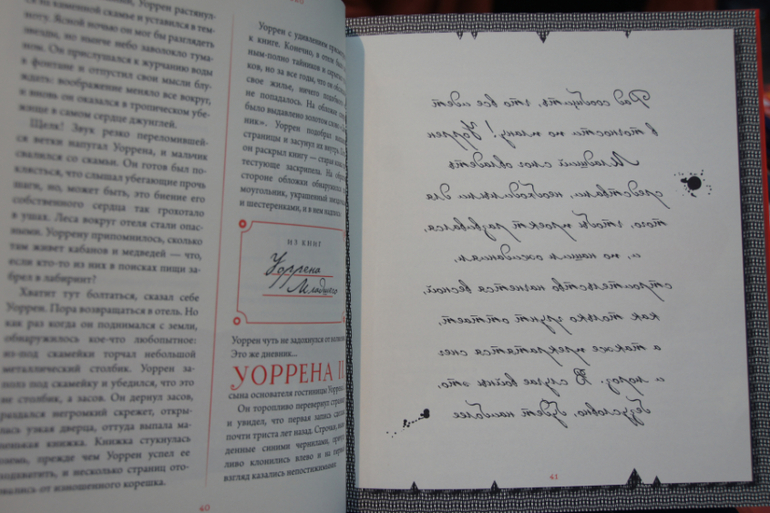 Уоррен растянул-
ся на каменной скамье и уставился в тем-
ноту. Ясной ночью он мог бы разглядеть
звезды, но нынче небо заволокло тума-
ном. Он прислушался к журчанию воды
в фонтане и отпустил свои мысли блу-
ждать: воображение меняло все вокруг,
и вновь он оказался в тропическом убе-
жище в самом сердце джунглей.
Щелк! Звук резко переломившей-
ся ветки напугал Уоррена, и мальчик
свалился со скамьи. Он готов был по-
клясться, что слышал убегающие прочь
шаги, но, может быть, это биение его
собственного сердца так грохотало
в ушах. Леса вокруг отеля стали опас-
ными. Уоррену припомнилось, сколько
там живет кабанов и медведей — что,
если кто-то из них в поисках пищи за-
брел в лабиринт?
Хватит тут болтаться, сказал себе
Уоррен. Пора возвращаться в отель. Но
как раз когда он поднимался с земли,
обнаружилось кое-что любопытное:
из-под скамейки торчал небольшой
металлический столбик. Уоррен за-
полз под скамейку и убедился, что это
не столбик, а засов. Он дернул засов,
раздался негромкий скрежет, откры-
лась узкая дверца, оттуда выпала ма-
ленькая книжка. Книжка стукнулась
оземь, прежде чем Уоррен успел ее
подхватить, и несколько страниц ото-
рвались от изношенного корешка.
40
Уоррен с удивлением
к книге. Конечно, в отеле
ным-полно тайников и
ков, но за все годы, что он
свое жилье, ничего
не попадалось. На обложке
было выдавлено золотом
ник». Уоррен подобрал
страницы и засунул их внутрь.
он раскрыл книгу — старая
тестующе заскрипела. На
стороне обложки обнаружился
моугольник, украшенный
и шестеренками, и в нем надпись
ИЗ КНИГ
Уоррена
Младшего
Уоррен чуть не задохнулся от
Это же дневник...
УОРРЕНА II
сына основателя гостиницы Уоррен
Он торопливо перевернул
и увидел, что первая запись
почти триста лет назад. Строчки,
денные синими чернилами,
ливо клонились влево и на первый
взгляд казались непостижимыми
Рад сообщить, что все идет
в точности по плану! Уоррен
Младший смог овладеть
средствами, необходимыми для
того, чтобы проект развивался,
и, по нашим ожиданиям,
строительство начнется весной,
как только грунт оттает,
а также прекратятся снег
и мороз. В случае войны это,
безусловно, будет наиболее
41